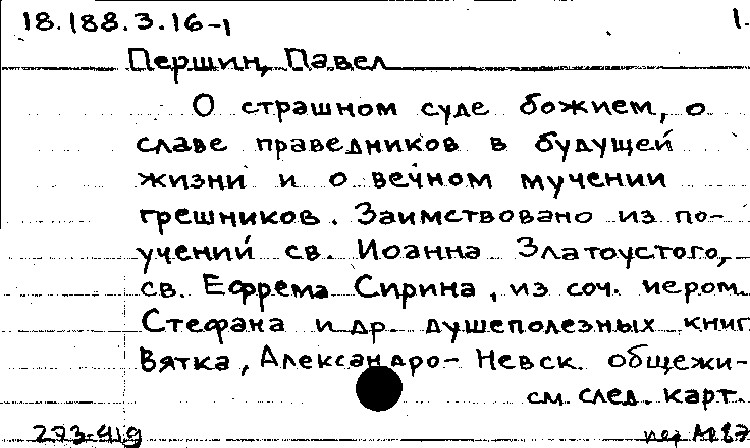 18.188.3.16-1 1.
Першин, Павел
О страшном суде божием, о
славе праведников в будущей
жизни и о вечном мучении
грешников. Заимствовано из по-
учений св. Иоанна Златоустого,
св. Ефрема Сирина, из соч. иером.
Стефана и др. душеполезных книг
Вятка, Александро-Невск. общежи-
см. след. карт.
273-419